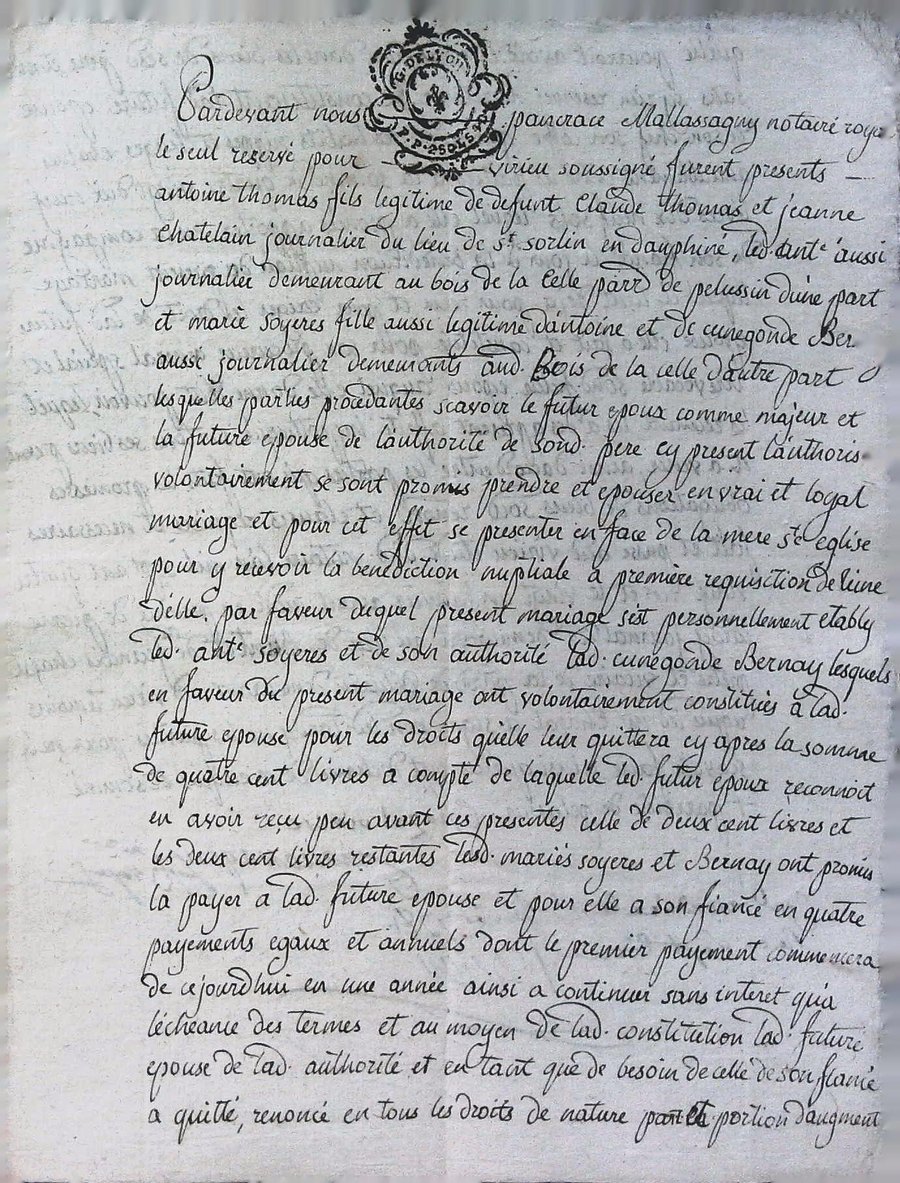 G. DE LYON
P. P. 2 SOLS 4 D.
Pardevant nous pancrace Mallassagny notaire roya
le seul reservé pour virieu soussigné furent presents
antoine thomas fils legitime de defunt Claude thomas et jeanne
Chatelain journalier du lieu de st. sorlin en dauphiné, led. ante. aussi
journalier demeurant au bois de la Celle parr. de pelussin d'une part
et marie soyeres fille aussi legitime d'antoine et de cunegonde Ber
aussi journalier demeurants aud. Bois de la celle d'autre part
lesquelles parties procedantes scavoir le futur epoux comme majeur et
la future epouse de l'authorité de sond. pere cy present l'authoris
volontairement se sont promis prendre et epouser en vrai et loyal
mariage et pour cet effet se presenter en face de la mere ste. eglise
pour y recevoir la benediction nuptiale a premiere requisition de l'une
d'elle. par faveur duquel present mariage s'est personnellement etably
led. ante. soyeres et de son authorité lad. cunegonde Bernay lesquels
en faveur du present mariage ont volontairement constitués a lad.
future epouse pour les droits quelle leur quittera cy apres la somme
de quatre cent livres a compte de laquelle led. futur epoux reconnoit
en avoir reçu peu avant ces presentes celle de deux cent livres et
les deux cent livres restantes lesd. mariés soyeres et Bernay ont promis
la payer a lad. future epouse et pour elle a son fiancé en quatre
payements egaux et annuels dont le premier payement commencera
de cejourdhui en une année ainsi a continuer sans interet qu'a
l'écheance des termes et au moyen de lad. constitution lad. future
epouse de lad. authorité et en tant que de besoin de celle de son fiancé
a quitté, renoncé en tous les droits de nature part et portion d'augment